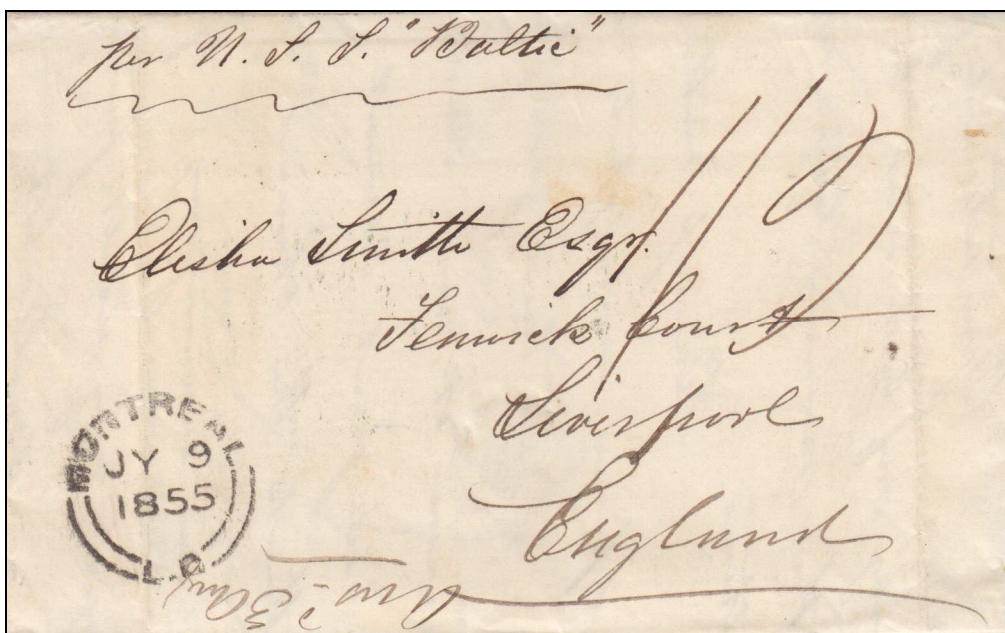 per U. S. S. "Baltic"
1/2
Elisha Smith Esqr.
Fenwick Court
Liverpool
England
MONTREAL
JY 9
1855
L.C.